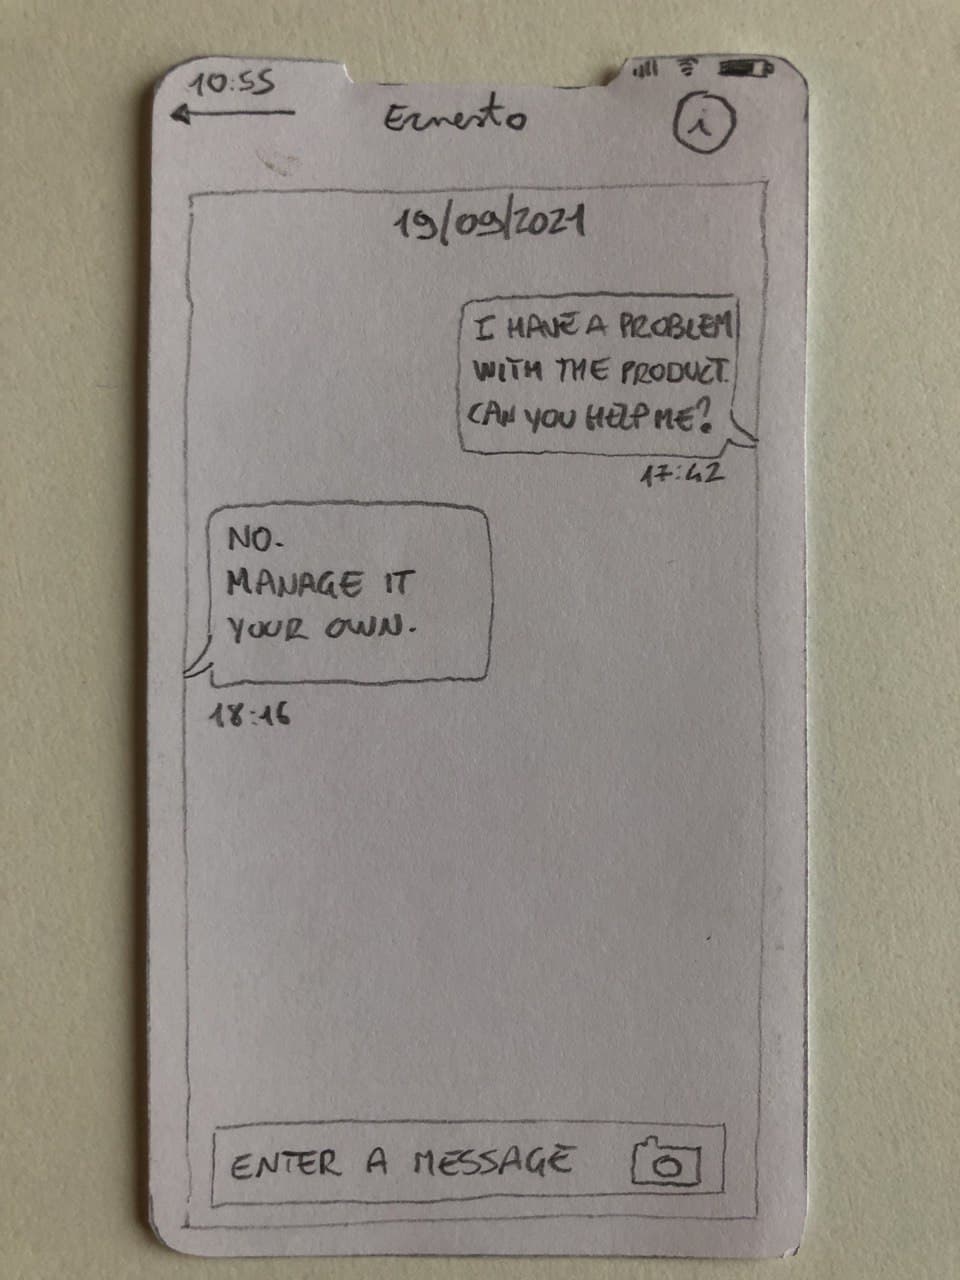 10:55
Ernesto
i
19/09/2021
I HAVE A PROBLEM
WITH THE PRODUCT.
CAN YOU HELP ME?
17:42
NO.
MANAGE IT
YOUR OWN.
18:16
ENTER A MESSAGE